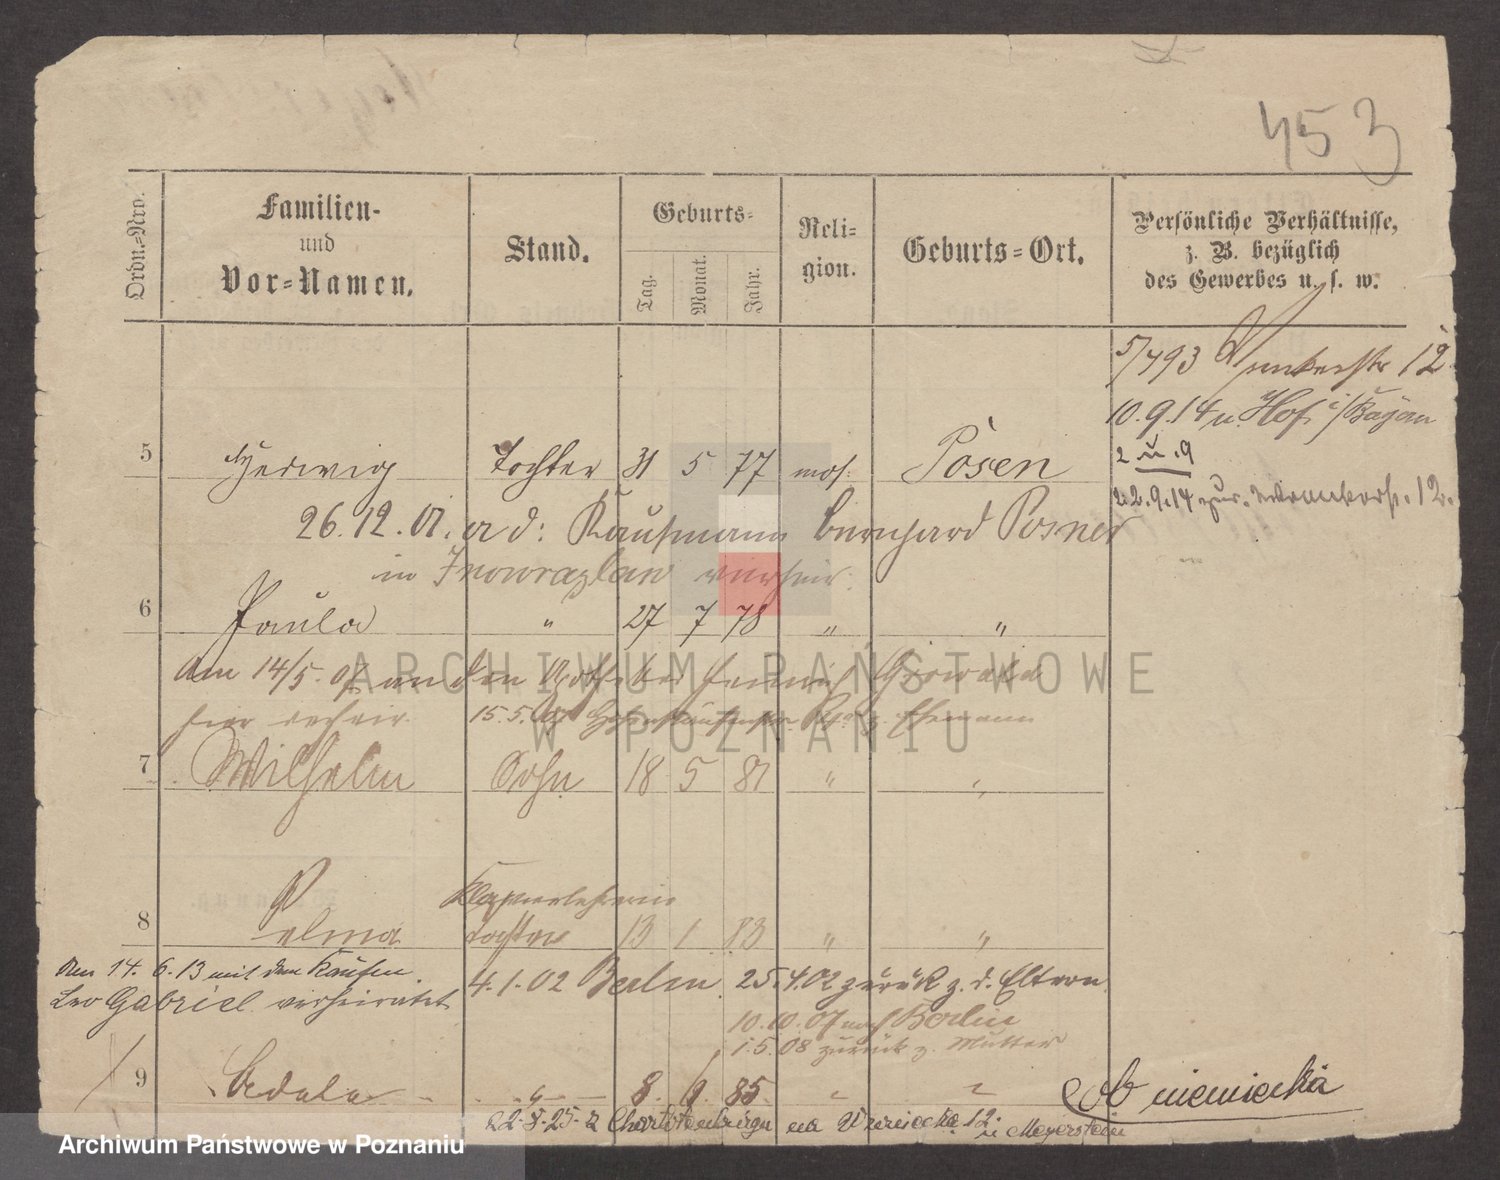 453
Ordn.-Nro.
Familien-
und
Vor-Namen.
Stand.
Geburts-
Tag.
Monat.
Jahr.
Reli-
gion.
Geburts-Ort.
Persönliche Verhältnisse,
z. B. bezüglich
des Gewerbes u. s. w.
5/493 12
10.9.14 u. Hof
5 Hedwig Tochter 31 5 77 mos. Posen
2 u. 9
22.9.14 zur. 12.
26.12.01. a d: Kaufmann Bernhard Posner
in Inowrazlaw verheir.
6 Paula " 27 7 78 " "
Am 14/5. 07 an den Heinrich
hier verheir. 15.5.07 z. Ehemann
7 Wilhelm Sohn 18 5 81 " "
Klavierlehrerin
8 Selma Tochter 13 1 83 " "
den 14. 6. 13 mit dem Kaufm.
Leo Gabriel verheiratet
4.1.02 Berlin. 25.4.02 zurück z. d. Eltern
10.10.07 nach Berlin
1.5.08 zurück z. Mutter
9 " 8. 85 " "
Ob niemiecka
22-8-25- z Charlottenburga na 12.
u Meyerstein
ARCHIWUM PAŃSTWOWE
W POZNANIU
Archiwum Państwowe w Poznaniu